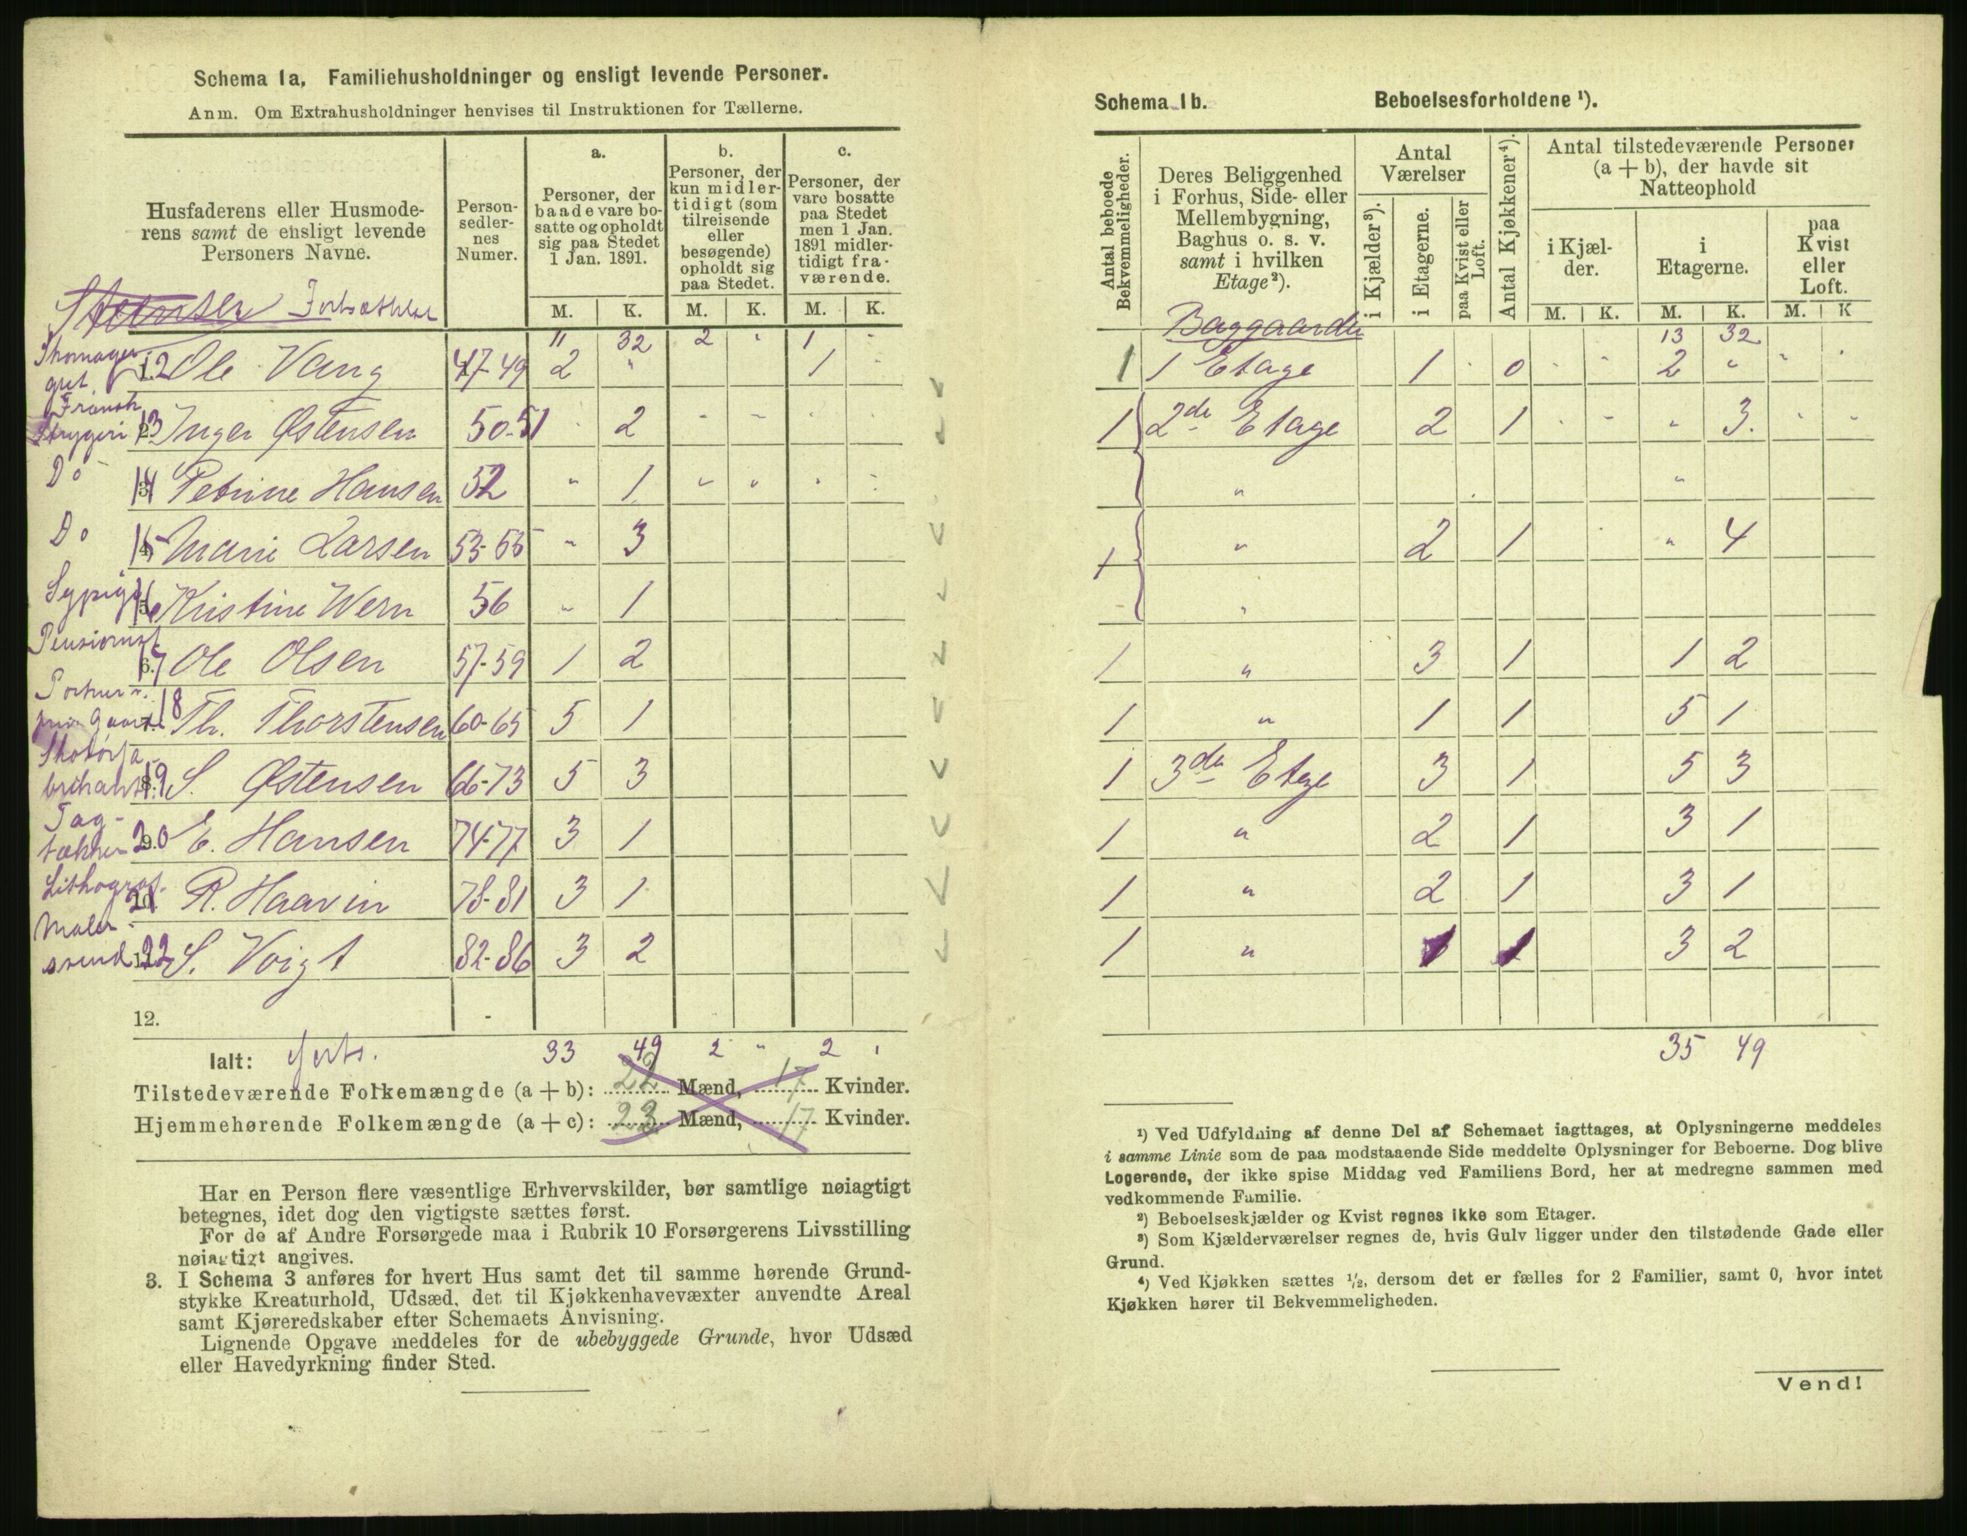 Schema 1a. Familiehusholdninger og ensligt levende Personer.
Anm. Om Extrahusholdninger henvises til Instruktionen for Tællerne.
Husfaderens eller Husmode-
rens samt de ensligt levende
Personers Navne.
Person-
sedler-
nes
Numer.
a.
Personer, der
baade vare bo-
satte og opholdt
sig paa Stedet
1 Jan. 1891.
b.
Personer, der
kun midler-
tidigt (som
tilreisende
eller
besøgende)
opholdt sig
paa Stedet.
c.
Personer, der
vare bosatte
paa Stedet
men 1 Jan.
1891 midler-
tidigt fra-
værende.
M. K. M. K. M. K.
11 32 2 " 1 -
12 Ole Vang 47-49 2 " 1
Fransk
Strygeri 13 Inger Østensen 50-51 - 2
Do 14 Petrine Hansen 52 " 1
Do 15 Marie Larsen 53-55 " 3
Sypige 16 Kristine Wern 56 " 1
Pensionist 17 Ole Olsen 57-59 1 2
18 Th. Thorstensen 60-65 5 1
19 S. Østensen 66-73 5 3
Tag-
tækker 20 E. Hansen 74-77 3 1
Lithograf. 21 R. Haavin 78-81 3 1
Maler-
svend 22 S. Voigt 82-86 3 2
12.
Ialt: 33 49 2 " 2
Tilstedeværende Folkemængde (a + b): 22 Mænd, 17 Kvinder.
Hjemmehørende Folkemængde (a + c): 23 Mænd, 17 Kvinder.
Har en Person flere væsentlige Erhvervskilder, bør samtlige nøiagtigt
betegnes, idet dog den vigtigste sættes først.
For de af Andre Forsørgede maa i Rubrik 10 Forsørgerens Livsstilling
nøiagtigt angives.
3. I Schema 3 anføres for hvert Hus samt det til samme hørende Grund-
stykke Kreaturhold, Udsæd, det til Kjøkkenhavevæxter anvendte Areal
samt Kjøreredskaber efter Schemaets Anvisning.
Lignende Opgave meddeles for de ubebyggede Grunde, hvor Udsæd
eller Havedyrkning finder Sted.
Schema 1b. Beboelsesforholdene ¹).
Antal beboede
Bekvemmeligheder.
Deres Beliggenhed
i Forhus, Side- eller
Mellembygning,
Baghus o. s. v.
samt i hvilken
Etage²).
Antal
Værelser
i Kjælder³).
i Etagerne.
paa Kvist eller
Loft.
Antal Kjøkkener⁴).
Antal tilstedeværende Personer
(a + b), der havde sit
Natteophold
i Kjæl-
der.
i
Etagerne.
paa
Kvist
eller
Loft.
M. K. M. K. M. K
Baggaarden 13 32
1 1 Etage 1 0 2 "
1 2de Etage 2 1 " 3.
" "
1 " 2 1 " 4
"
1 " 3 1 1 2
1 " 1 1 5 1
1 3de Etage 3 1 5 3
1 " 2 1 3 1
1 " 2 1 3 1
1 " 1 1 3 2
35 49
¹) Ved Udfyldning af denne Del af Schemaet iagttages, at Oplysningerne meddeles
i samme Linie som de paa modstaaende Side meddelte Oplysninger for Beboerne. Dog blive
Logerende, der ikke spise Middag ved Familiens Bord, her at medregne sammen med
vedkommende Familie.
²) Beboelseskjælder og Kvist regnes ikke som Etager.
³) Som Kjælderværelser regnes de, hvis Gulv ligger under den tilstødende Gade eller
Grund.
⁴) Ved Kjøkken sættes ½, dersom det er fælles for 2 Familier, samt 0, hvor intet
Kjøkken hører til Bekvemmeligheden.
Vend!